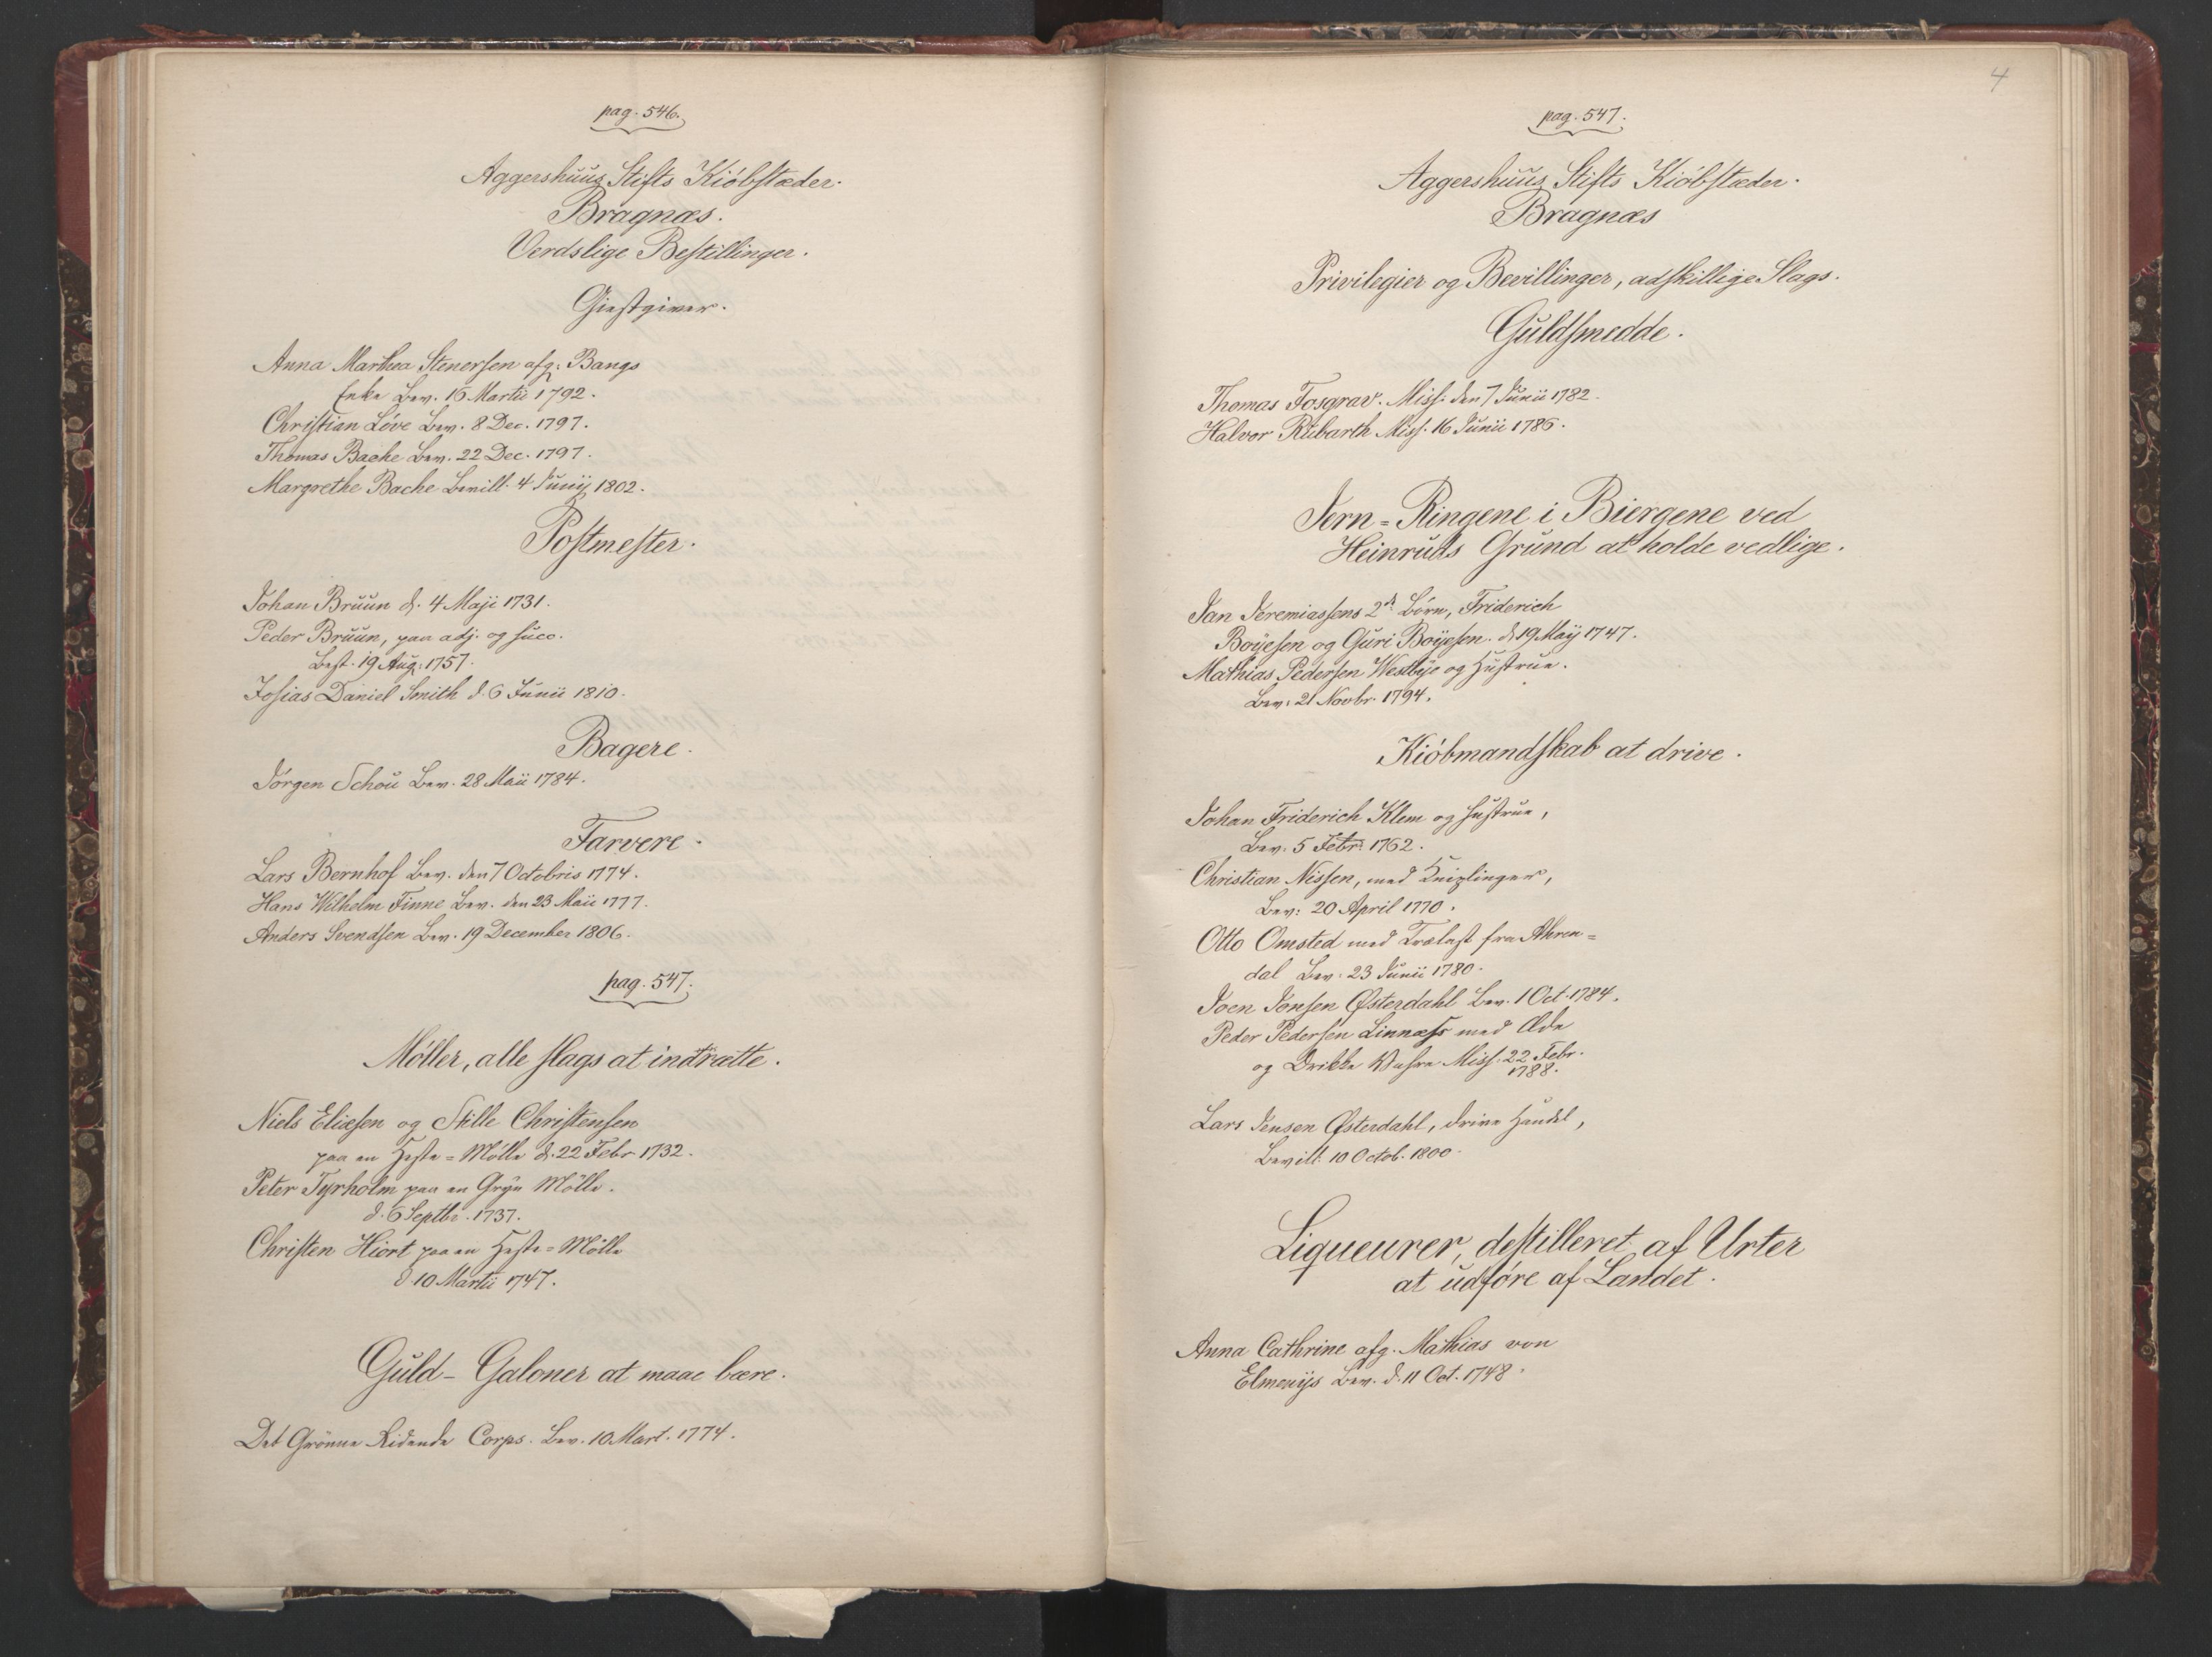 pag. 546.
Aggershuus Stifts Kiøbstæder.
Bragnæs.
Verdslige Bestillinger.
Giestgiver.
Anna Marthea Stenersen afg: Bangs
Enke Bev. 16 Martii 1792.
Christian Løve Bev. 8 Dec. 1797.
Thomas Bache Bev. 22 Dec. 1797.
Margrethe Bache Bevill. 4 Junij 1802.
Postmester.
Johan Bruun d. 4 Maji 1731.
Peder Bruun, paa adj. og succ.
Best. 19 Aug: 1757.
Josias Daniel Smith d. 6 Junii 1810.
Bagere.
Jørgen Schou Bev. 28 Maii 1784.
Farvere.
Lars Bernhof Bev. den 7 Octobris 1774.
Hans Wilhelm Finne Bev. den 23 Maii 1777.
Anders Svendsen Bev. 19 December 1806.
pag. 547.
Møller, alle slags at indrætte.
Niels Eliesen og Stille Christensen
paa en Heste=Mølle d. 22 Febr 1732.
Peter Tyrholm paa en Gryn Mølle.
d. 6 Septbr. 1737.
Christen Hiort paa en Heste=Mølle
d 10 Martii 1747.
Guld-Galoner at maae bære.
Det Grønne Ridende Corps. Bev. 10 Mart. 1774.
4
pag. 547.
Aggershuus Stifts Kiøbstæder.
Bragnæs
Privilegier og Bevillinger, adskillige Slags.
Guldsmedde.
Thomas Fosgrav. Miss. den 7 Junii 1782.
Halvor Rubarth Miss. 16 Junii 1786.
Jern=Ringene i Biergene ved
Heinruds Grund at holde vedlige.
Jan Jeremiassens 2de Børn, Friderich
Boÿesen og Guri Boÿesen. d. 19 Maÿ 1747.
Mathias Pedersen Westbye og Hustrue.
Bev: 21 Novbr. 1794.
Kiøbmandskab at drive.
Johan Friderich Klem og Hustrue,
Bev. 5 Febr. 1762.
Christian Nissen, med Kniplinger,
Bev: 20 April 1770.
Otto Omsted med Trælast fra Ahren=
dal Bev: 23 Junii 1780.
Joen Jonsen Østerdahl Bev. 1 Oct. 1784.
Peder Pedersen Linnæss med Æde
og Drikke Wahre Miss. 22 Febr.
1788.
Lars Jensen Østerdahl, drive Handel,
Bevill. 10 Octob. 1800.
Liqueurer, destilleret af Urter
at udføre af Landet.
Anna Cathrine afg. Mathias von
Bev. d. 11 Oct. 1748.